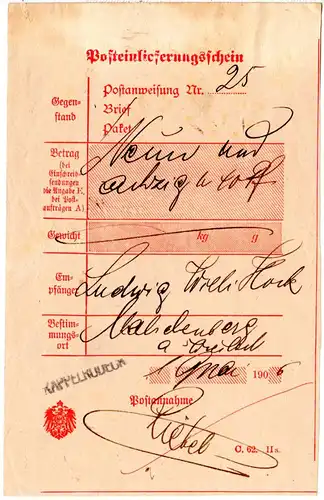 Posteinlieferungsschein
Gegen-
stand
Postanweisung Nr. 25
Brief
Paket
Betrag
(bei
Einschreib-
sendungen
die Angabe E,
bei Post-
aufträgen A)
Neun und
achzig M 40 Pf
Gewicht
kg g
Em-
pfänger
Ludwig
Bestim-
mungs-
ort
a
1 Mai 1906
KAPPELRODECK
Postannahme
C. 62. IIa.